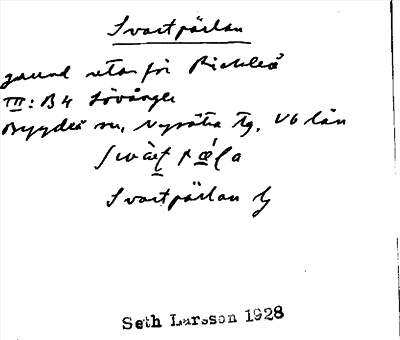 Svartpärlan
grund utanför Rickleå
III: B4 Lövånger
Bygdeå sn, Nysätra tg, Vb län
Svartpärlan
Seth Larsson 1928